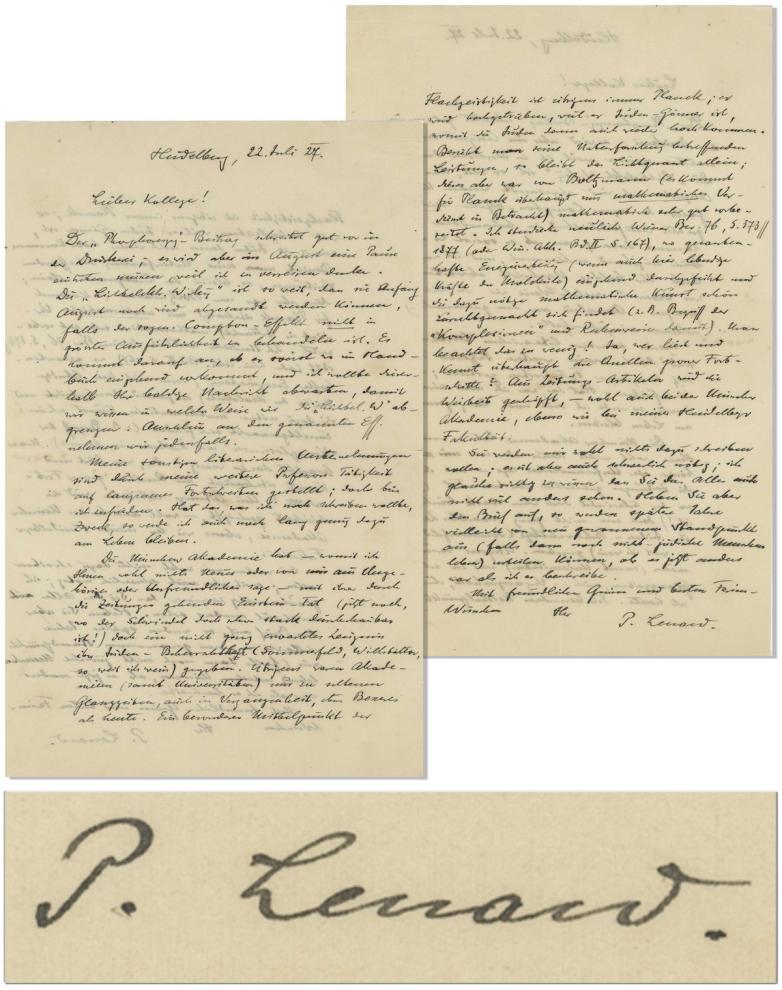 Heidelberg, 22. Juli 27.
Lieber Kollege!
Der „Phosphoresz."-Beitrag schreitet gut vor in
der Druckerei; es wird aber im August eine Pause
eintreten müssen, weil ich zu verreisen denke.
ist so weit, dass sie Anfang
August noch wird abgesandt werden können,
falls der sogen. Compton-Effekt nicht in
grösster Ausführlichkeit zu behandeln ist. Es
kommt darauf an, ob er sonst wo im Hand-
buch eingehend vorkommt, und ich wollte dieser-
halb Ihre baldige Nachricht abwarten, damit
wir wissen in welcher Weise wir ab-
grenzen. den genannten Eff.
nehmen wir jedenfalls.
Meine sonstigen literarischen Unternehmungen
sind dank meiner weiteren Professor-Tätigkeit
auf langsames Fortschreiten gestellt; doch bin
ich zufrieden. Hat das, was ich noch schreiben wollte,
Zweck, so werde ich auch noch lang genug dazu
am Leben bleiben.
Die Münchner Akademie hat – womit ich
Ihnen wohl nichts Neues oder von mir aus Unge-
höriges oder Unfreundliches sage – mit ihrer durch
die Zeitungen gehenden Einstein-Tat (jetzt noch,
wo der Schwindel doch schon stark durchschaubar
ist!) doch ein nicht ganz erwartetes Zeugnis
ihrer Juden- (Sommerfeld, Willstätter,
so weit ich weiss) gegeben. Übrigens waren Akade-
mien (samt Universitäten) nur zu seltenen
Glanzzeiten, auch in Vergangenheit, etwas Besseres
als heute. Ein besonderer Mittelpunkt der
Flachgeistigkeit ist übrigens immer Planck; er
wird hochgetrieben, weil er Juden-Gönner ist,
womit die Juden dann auch wieder hoch kommen.
Besieht man seine betreffenden
Leistungen, so bleibt das Lichtquant allein;
dieses aber war von Boltzmann (es kommt
für Planck überhaupt nur mathematisches Ver-
dienst in Betracht) mathematisch sehr gut vorbe-
reitet. Ich studierte neulich Wiener Ber. 76, S. 373 ff
1877 (oder Wiss. Abh. Bd. II S. 167), wo quanten-
hafte Energieverteilung (wenn auch hier lebendige
Kräfte der Moleküle) eingehend durchgeführt und
die dazu nötige mathematische Kunst schön
zurechtgemacht sich findet (z. B. Begriff der
„Komplexionen" und Rechenweise damit). Man
beachtet das zu wenig! Ja, wer liest und
kennt überhaupt die Quellen grosser Fort-
schritte? Aus Zeitungs-Artikeln wird die
Weisheit geschöpft, – wohl auch bei der Münchner
Akademie, ebenso wie bei meiner Heidelberger
Fakultät.
Sie werden mir wohl nichts dazu schreiben
wollen; es ist aber auch schwerlich nötig; ich
glaube richtig zu wissen dass Sie das Alles auch
nicht viel anders sehen. Heben Sie aber
den Brief auf, so werden spätere Jahre
vielleicht von neu gewonnenem Standpunkt
aus (falls dann noch nicht-jüdische Menschen
leben) urteilen können, ob es jetzt anders
war als ich es beschreibe.
Mit freundlichen Grüssen und besten Ferien-
Wünschen Ihr
P. Lenard.
P. Lenard.